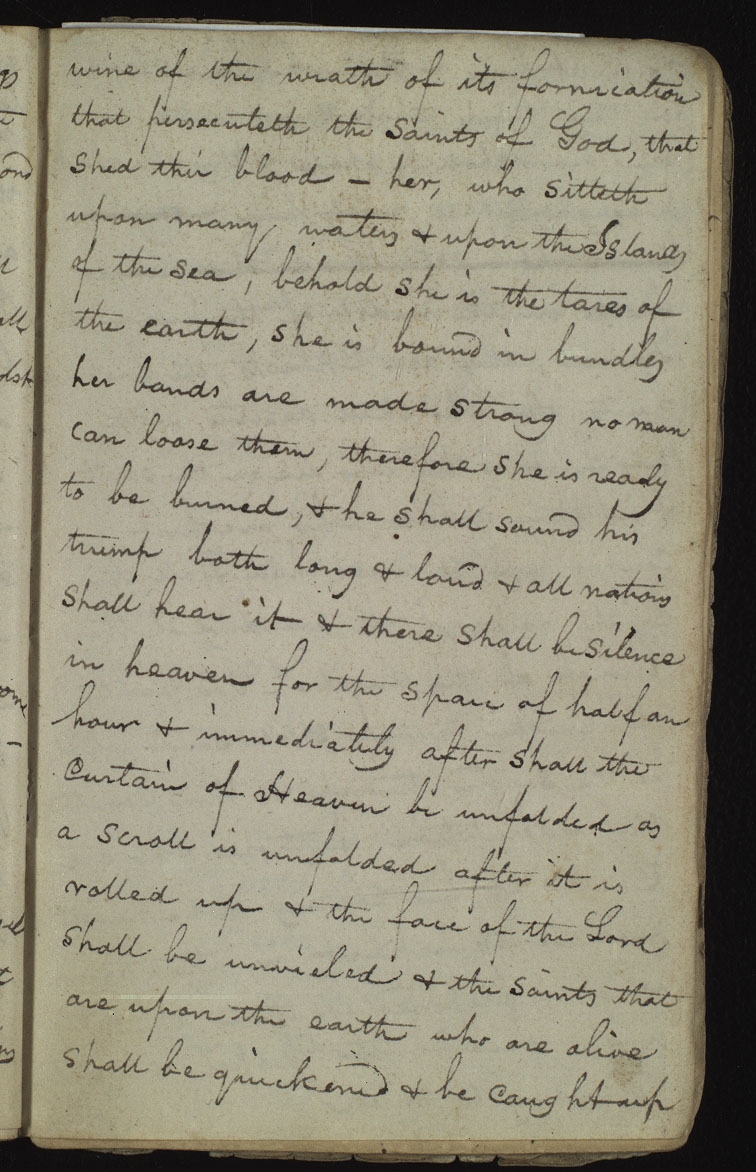 wine of the wrath of its fornication
that persecuteth the Saints of God, that
Shed their blood – her, who Sitteth
upon many waters & upon the Islands
of the Sea, behold She is the tares of
the earth, She is bound in bundles
her bands are made Strong no man
can loose them, therefore She is ready
to be burned, & he Shall Sound his
trump both long & loud & all nations
Shall hear it & there Shall be Silence
in heaven for the Space of half an
hour & immediately after Shall the
Curtain of Heaven be unfolded as
a Scroll is unfolded after it is
rolled up & the face of the Lord
Shall be unvieled & the Saints that
are upon the earth who are alive
Shall be quickened & be Caught up